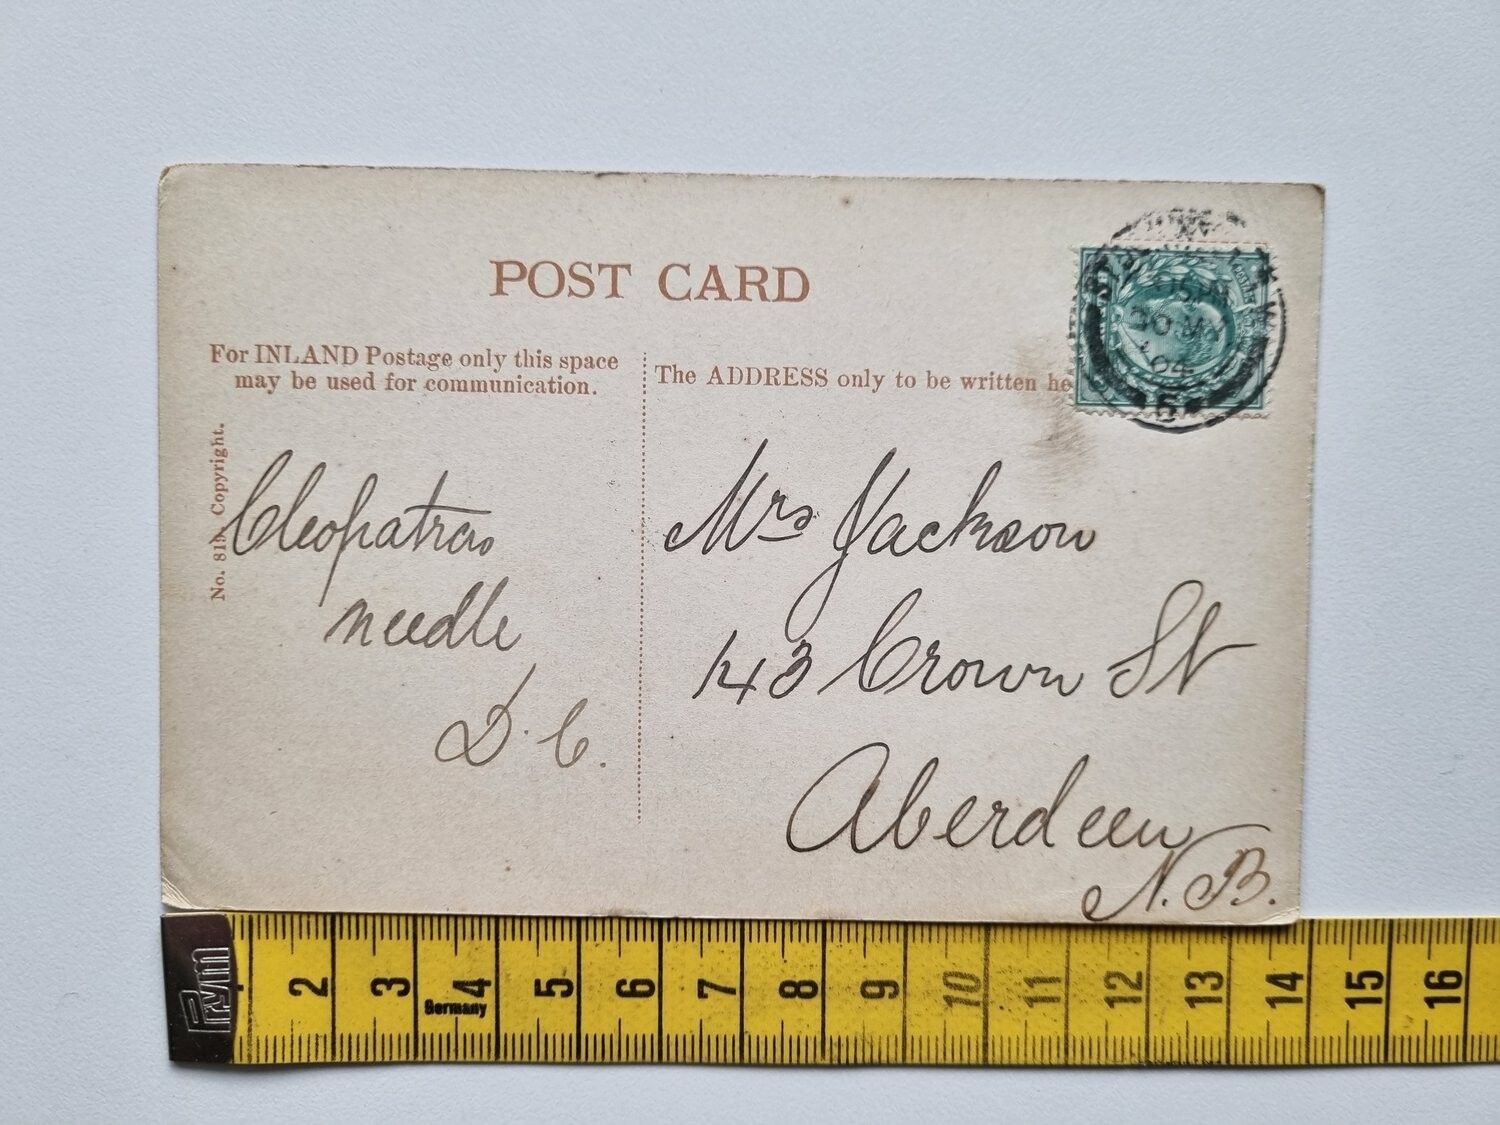 POST CARD
For INLAND Postage only this space
may be used for communication.
The ADDRESS only to be written he
No. 819. Copyright.
Cleopatras
needle
D. C.
Mrs Jackson
143 Crown St
Aberdeen
N. B.
20 MY
04
5
Prym
2 3 4 5 6 7 8 9 10 11 12 13 14 15 16
Germany